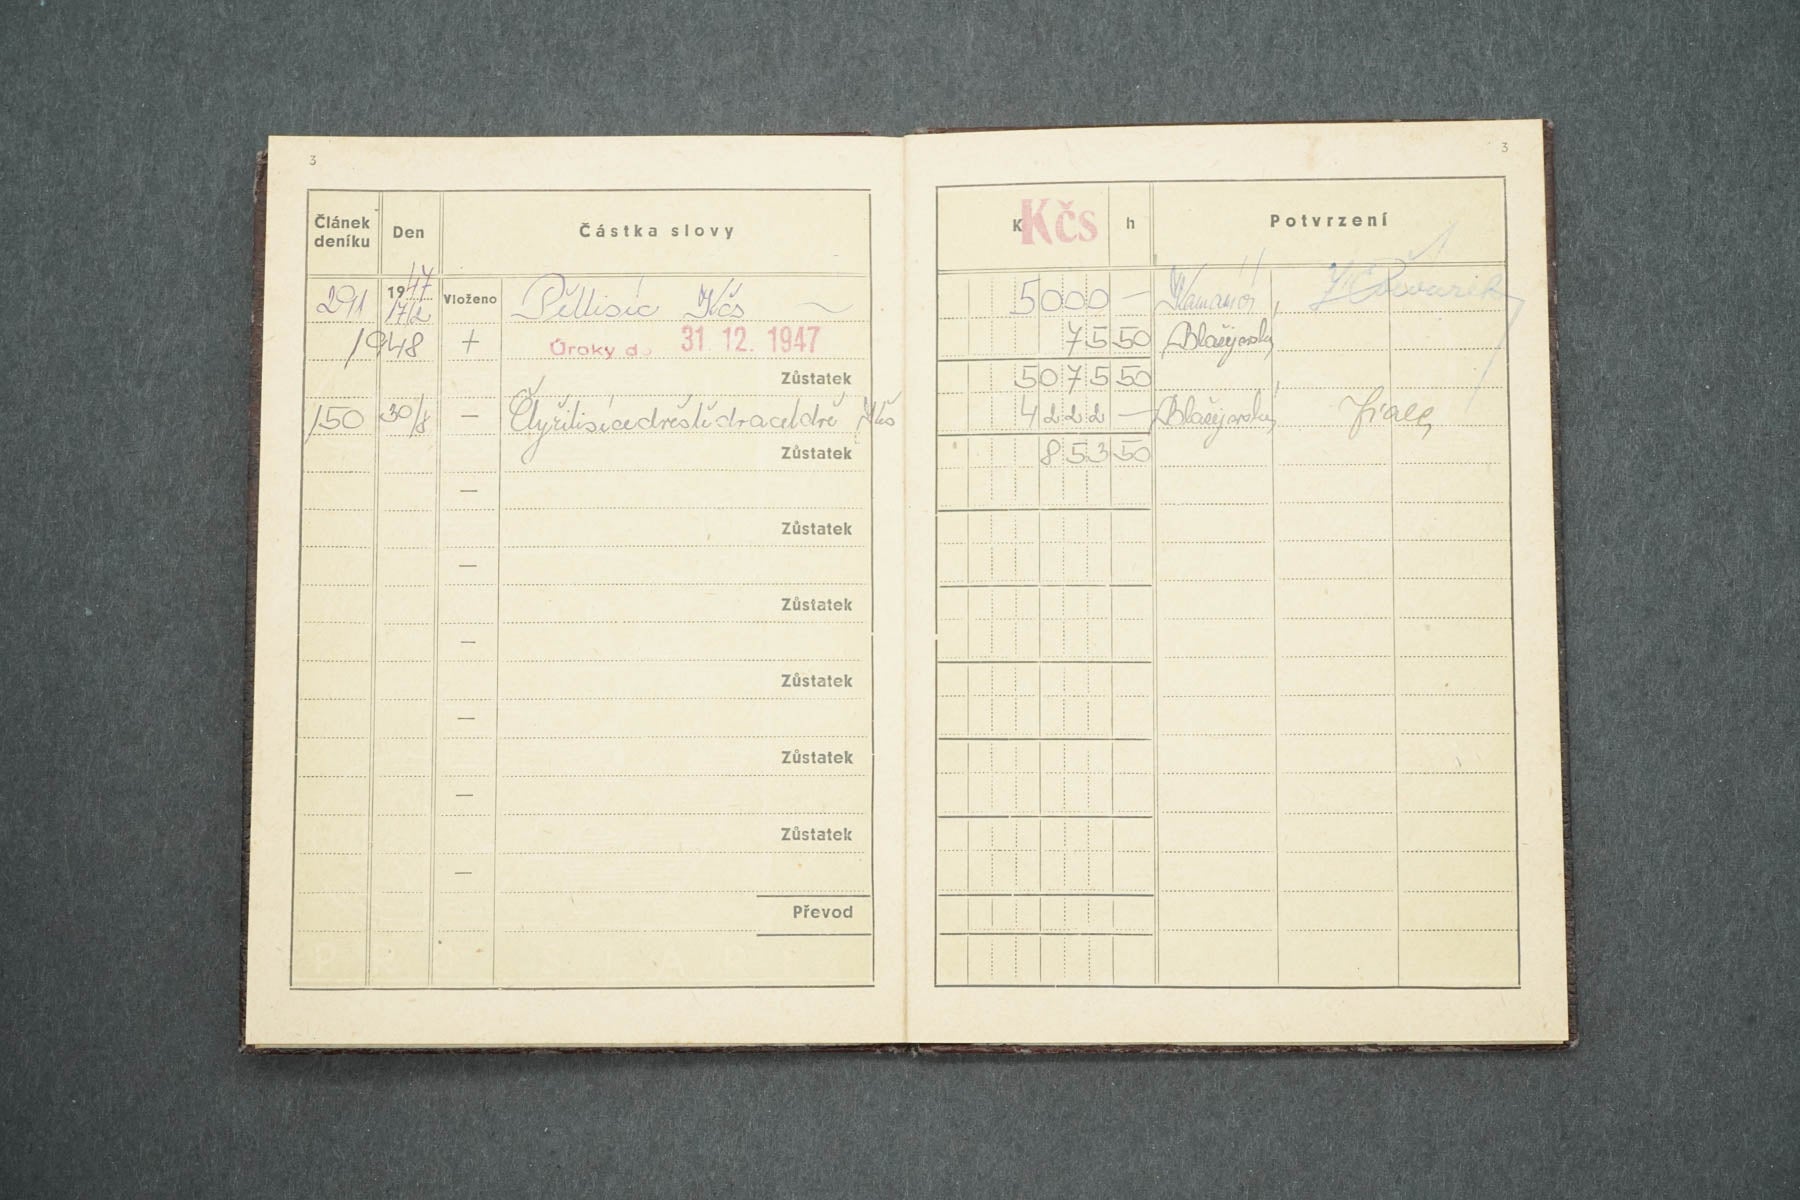 3
3
Článek deníku
Den
Částka slovy
K Kčs
h
Potvrzení
291
1947 17/2
Vloženo
Pěttisíc Kčs
5000 —
1948
+
Úroky do 31. 12. 1947
75 50
Zůstatek
5075 50
150
30/8
—
Čtyřitisícedvěstědvacetdvě Kčs
4222 —
Zůstatek
853 50
—
Zůstatek
—
Zůstatek
—
Zůstatek
—
Zůstatek
—
Zůstatek
—
Převod